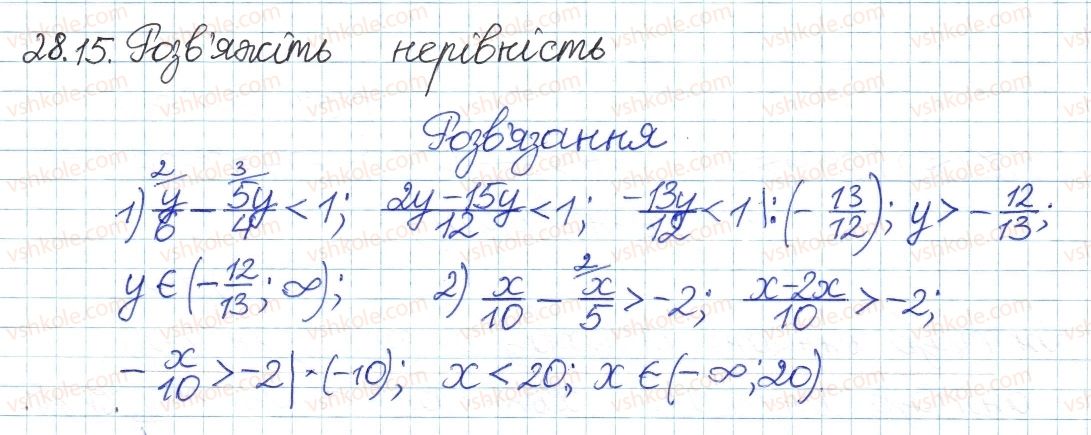 28.15. Розв'яжіть нерівність
Розв'язання
1) ²⁄ y/6 − ³⁄ 5y/4 < 1; (2y − 15y)/12 < 1; −13y/12 < 1 |: (− 13/12); y > − 12/13;
y ∈ (− 12/13; ∞); 2) x/10 − ²⁄ x/5 > −2; (x − 2x)/10 > −2;
− x/10 > −2 | · (−10); x < 20; x ∈ (−∞; 20).